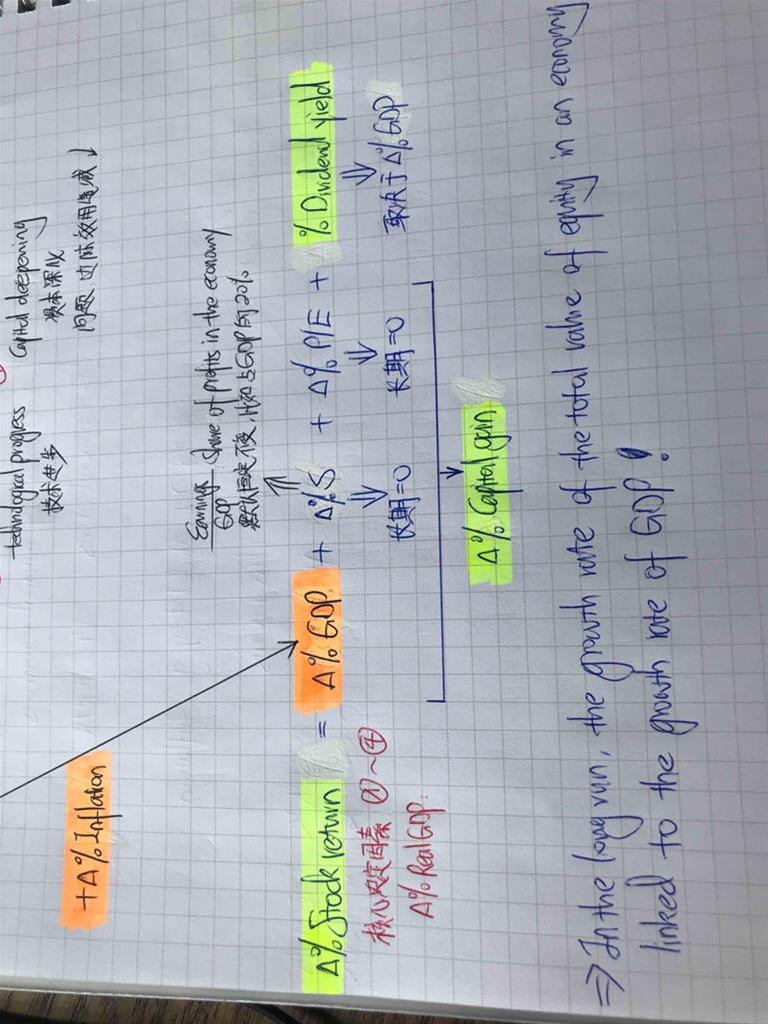 technological progress
技术进步
Capital deepening
资本深化
问题：边际效用递减↓
+Δ%Inflation
Earnings/GDP Share of profits in the economy
默认固定不变，比如占GDP的20%
Δ%Stock return = Δ%GDP + Δ%S + Δ%P/E + %Dividend yield
长期=0
长期=0
取决于Δ%GDP
核心决定因素 ①~④
Δ%Real GDP.
Δ%Capital gain
⇒In the long run, the growth rate of the total value of equity in an economy
linked to the growth rate of GDP!